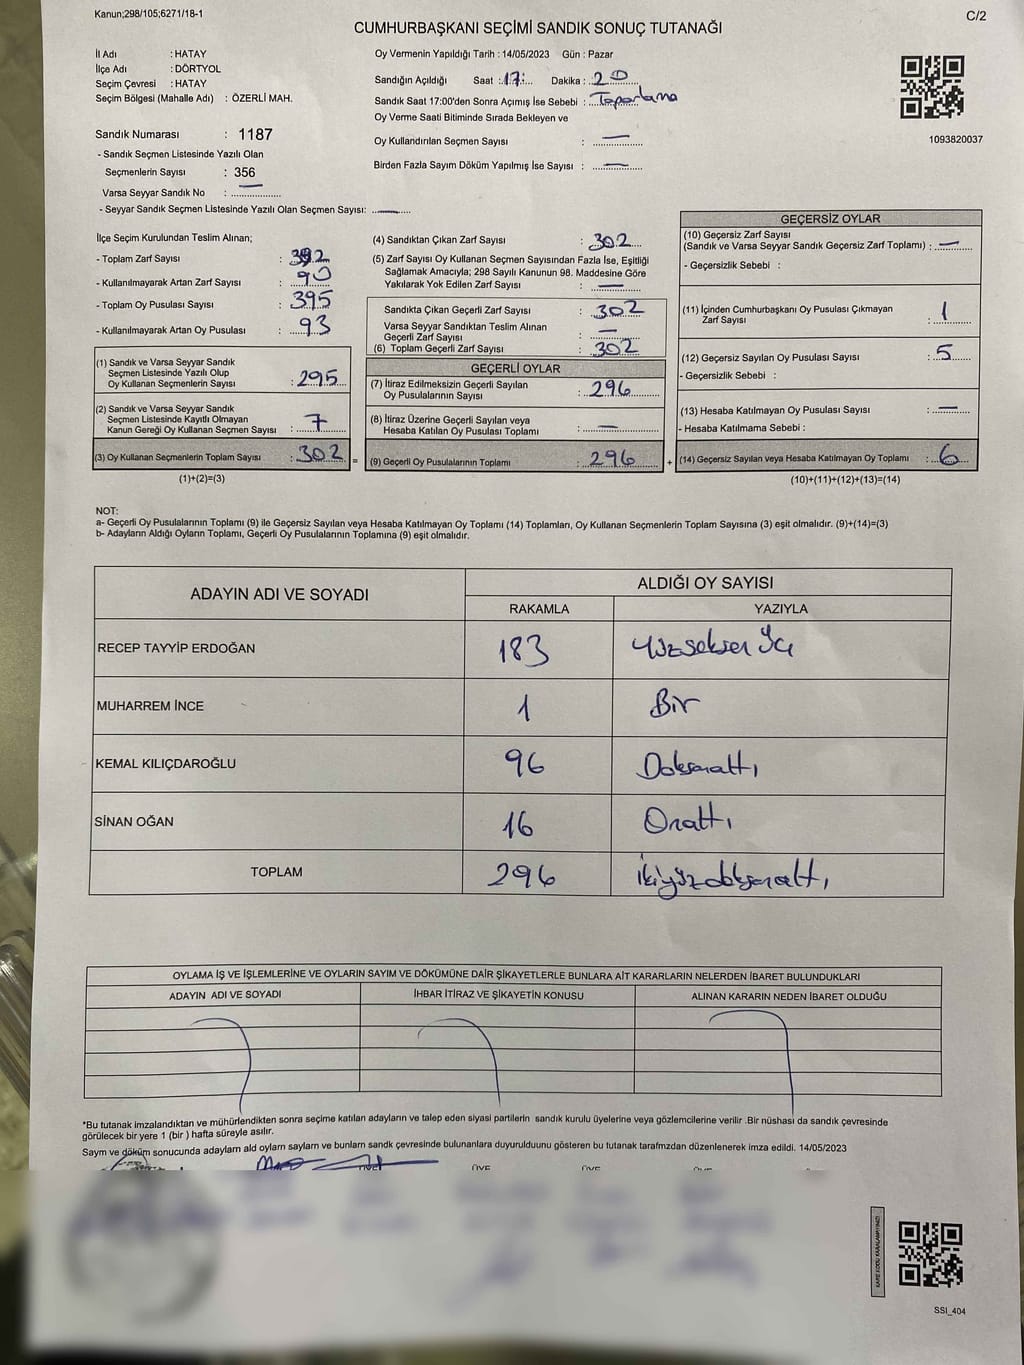 Kanun;298/105;6271/18-1
C/2
CUMHURBAŞKANI SEÇİMİ SANDIK SONUÇ TUTANAĞI
İl Adı : HATAY
İlçe Adı : DÖRTYOL
Seçim Çevresi : HATAY
Seçim Bölgesi (Mahalle Adı) : ÖZERLİ MAH.
Sandık Numarası : 1187
- Sandık Seçmen Listesinde Yazılı Olan
Seçmenlerin Sayısı : 356
Varsa Seyyar Sandık No : —
- Seyyar Sandık Seçmen Listesinde Yazılı Olan Seçmen Sayısı: —
Oy Vermenin Yapıldığı Tarih : 14/05/2023 Gün : Pazar
Sandığın Açıldığı Saat : 17: Dakika : 20
Sandık Saat 17:00'den Sonra Açımış İse Sebebi : Toparlama
Oy Verme Saati Bitiminde Sırada Bekleyen ve
Oy Kullandırılan Seçmen Sayısı : —
Birden Fazla Sayım Döküm Yapılmış İse Sayısı : —
1093820037
İlçe Seçim Kurulundan Teslim Alınan;
- Toplam Zarf Sayısı : 392
- Kullanılmayarak Artan Zarf Sayısı : 90
- Toplam Oy Pusulası Sayısı : 395
- Kullanılmayarak Artan Oy Pusulası : 93
(1) Sandık ve Varsa Seyyar Sandık
Seçmen Listesinde Yazılı Olup
Oy Kullanan Seçmenlerin Sayısı : 295
(2) Sandık ve Varsa Seyyar Sandık
Seçmen Listesinde Kayıtlı Olmayan
Kanun Gereği Oy Kullanan Seçmen Sayısı : 7
(3) Oy Kullanan Seçmenlerin Toplam Sayısı : 302
(1)+(2)=(3)
(4) Sandıktan Çıkan Zarf Sayısı : 302
(5) Zarf Sayısı Oy Kullanan Seçmen Sayısından Fazla İse, Eşitliği
Sağlamak Amacıyla; 298 Sayılı Kanunun 98. Maddesine Göre
Yakılarak Yok Edilen Zarf Sayısı : —
Sandıkta Çıkan Geçerli Zarf Sayısı : 302
Varsa Seyyar Sandıktan Teslim Alınan
Geçerli Zarf Sayısı : —
(6) Toplam Geçerli Zarf Sayısı : 302
GEÇERLİ OYLAR
(7) İtiraz Edilmeksizin Geçerli Sayılan
Oy Pusulalarının Sayısı : 296
(8) İtiraz Üzerine Geçerli Sayılan veya
Hesaba Katılan Oy Pusulası Toplamı : —
= (9) Geçerli Oy Pusulalarının Toplamı : 296
GEÇERSİZ OYLAR
(10) Geçersiz Zarf Sayısı
(Sandık ve Varsa Seyyar Sandık Geçersiz Zarf Toplamı) : —
- Geçersizlik Sebebi :
(11) İçinden Cumhurbaşkanı Oy Pusulası Çıkmayan
Zarf Sayısı : 1
(12) Geçersiz Sayılan Oy Pusulası Sayısı : 5
- Geçersizlik Sebebi :
(13) Hesaba Katılmayan Oy Pusulası Sayısı : —
- Hesaba Katılmama Sebebi :
+ (14) Geçersiz Sayılan veya Hesaba Katılmayan Oy Toplamı : 6
(10)+(11)+(12)+(13)=(14)
NOT:
a- Geçerli Oy Pusulalarının Toplamı (9) ile Geçersiz Sayılan veya Hesaba Katılmayan Oy Toplamı (14) Toplamları, Oy Kullanan Seçmenlerin Toplam Sayısına (3) eşit olmalıdır. (9)+(14)=(3)
b- Adayların Aldığı Oyların Toplamı, Geçerli Oy Pusulalarının Toplamına (9) eşit olmalıdır.
ADAYIN ADI VE SOYADI ALDIĞI OY SAYISI
RAKAMLA YAZIYLA
RECEP TAYYİP ERDOĞAN 183 Yüzseksen Üç
MUHARREM İNCE 1 Bir
KEMAL KILIÇDAROĞLU 96 Doksanaltı
SİNAN OĞAN 16 Onaltı
TOPLAM 296 ikiyüzdoksanaltı
OYLAMA İŞ VE İŞLEMLERİNE VE OYLARIN SAYIM VE DÖKÜMÜNE DAİR ŞİKAYETLERLE BUNLARA AİT KARARLARIN NELERDEN İBARET BULUNDUKLARI
ADAYIN ADI VE SOYADI İHBAR İTİRAZ VE ŞİKAYETİN KONUSU ALINAN KARARIN NEDEN İBARET OLDUĞU
*Bu tutanak imzalandıktan ve mühürlendikten sonra seçime katılan adayların ve talep eden siyasi partilerin sandık kurulu üyelerine veya gözlemcilerine verilir .Bir nüshası da sandık çevresinde
görülecek bir yere 1 (bir ) hafta süreyle asılır.
Saym ve döküm sonucunda adaylarn ald oylarn saylarn ve bunlarn sandk çevresinde bulunanlara duyurulduunu gösteren bu tutanak tarafmzdan düzenlenerek imza edildi. 14/05/2023
ÜYE ÜYE
SSI_404